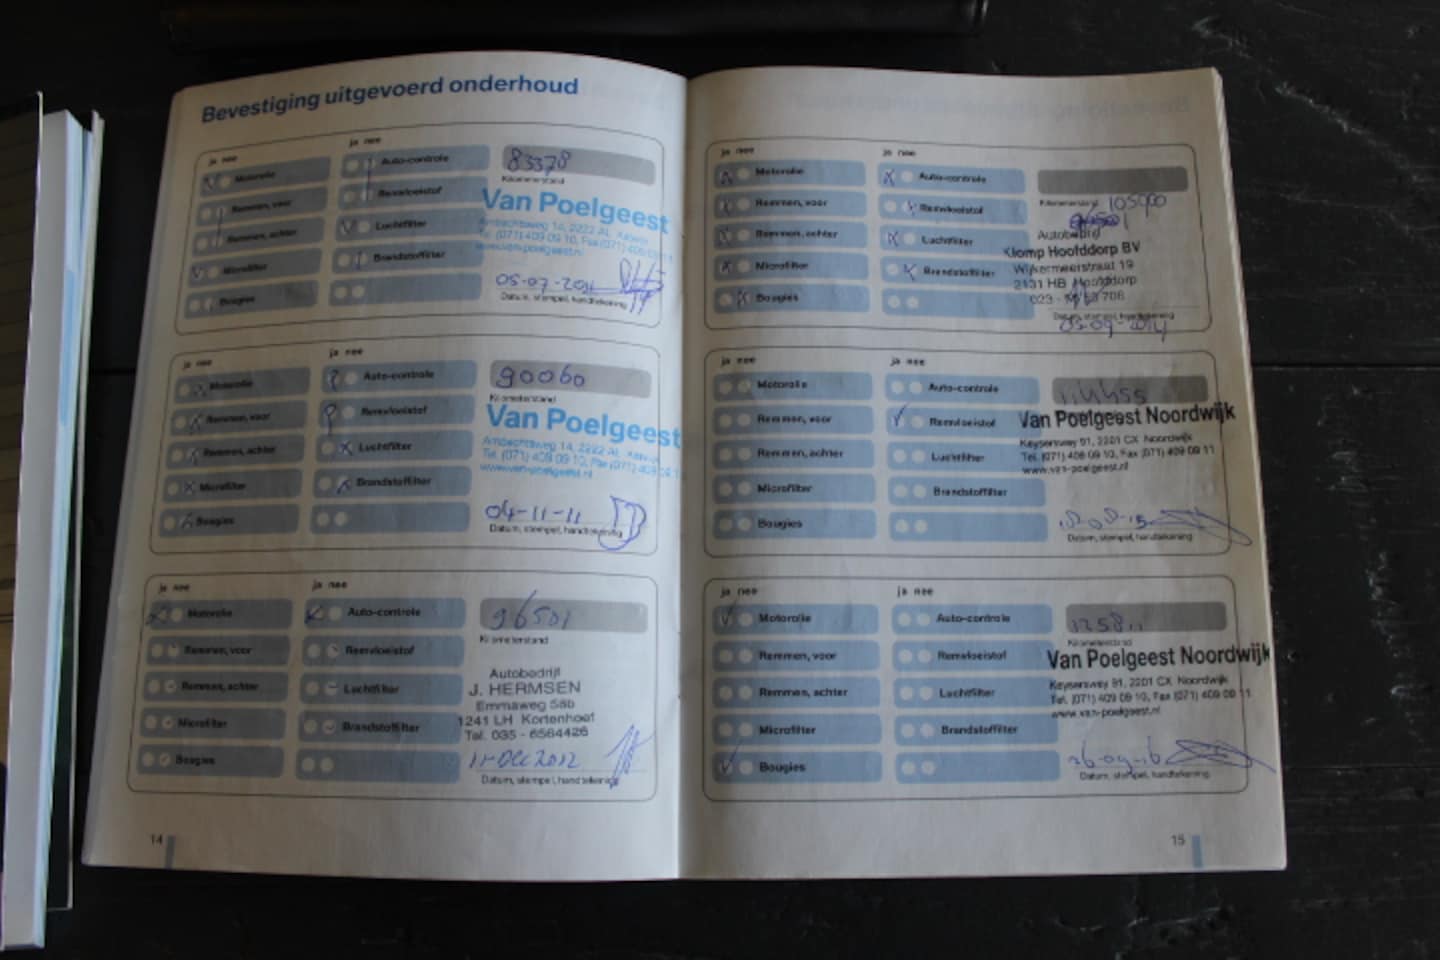 Bevestiging uitgevoerd onderhoud
ja nee
ja nee
Motorolie
Auto-controle
83378
Kilometerstand
Remmen, voor
Remvloeistof
Van Poelgeest
Ambachtsweg 14, 2222 AL
Tel. (071) 409 09 10, Fax (071) 409
www.van-poelgeest.nl
Remmen, achter
Luchtfilter
Microfilter
Brandstoffilter
Bougies
05-07-2011
Datum, stempel, handtekening
ja nee
ja nee
Motorolie
Auto-controle
90060
Kilometerstand
Remmen, voor
Remvloeistof
Van Poelgeest
Ambachtsweg 14, 2222 AL
Tel. (071) 409 09 10, Fax (071) 409 09 11
www.van-poelgeest.nl
Remmen, achter
Luchtfilter
Microfilter
Brandstoffilter
Bougies
04-11-11
Datum, stempel, handtekening
ja nee
ja nee
Motorolie
Auto-controle
96501
Kilometerstand
Remmen, voor
Remvloeistof
Remmen, achter
Luchtfilter
Microfilter
Brandstoffilter
Bougies
Autobedrijf
J. HERMSEN
Emmaweg 58b
1241 LH Kortenhoef
Tel. 035 - 6564426
11-Dec 2012
Datum, stempel, handtekening
14
ja nee
ja nee
Motorolie
Auto-controle
Kilometerstand 105000
Remmen, voor
Remvloeistof
Remmen, achter
Luchtfilter
Microfilter
Brandstoffilter
Bougies
Autobedrijf
Klomp Hoofddorp BV
Wijkermeerstraat 19
2131 HB Hoofddorp
023 -
Datum, stempel, handtekening
03-09-2014
ja nee
ja nee
Motorolie
Auto-controle
114455
Remmen, voor
Remvloeistof
Van Poelgeest Noordwijk
Keyserswey 91, 2201 CX Noordwijk
Tel. (071) 409 09 10, Fax (071) 409 09 11
www.van-poelgeest.nl
Remmen, achter
Luchtfilter
Microfilter
Brandstoffilter
Bougies
Datum, stempel, handtekening
ja nee
ja nee
Motorolie
Auto-controle
125811
Kilometerstand
Remmen, voor
Remvloeistof
Van Poelgeest Noordwijk
Keyserswey 91, 2201 CX Noordwijk
Tel. (071) 409 09 10, Fax (071) 409 09 11
www.van-poelgeest.nl
Remmen, achter
Luchtfilter
Microfilter
Brandstoffilter
Bougies
26-09-16
Datum, stempel, handtekening
15